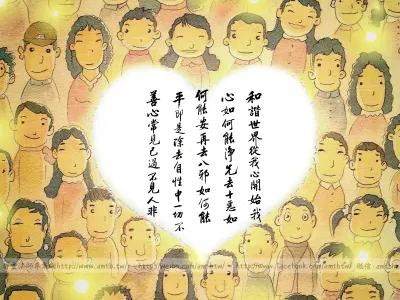 和諧世界從我心開始我
心如何能淨先去十惡如
何能安再去八邪如何能
平即是除去自性中一切不
善心常見己過不見人非
http://www.amtb.tw/
http://www.facebook.com/amtbtw/